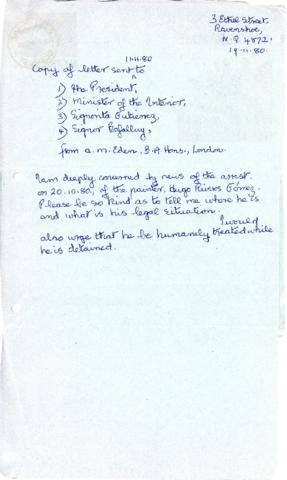 3 Ethel Street,
Ravenshoe,
N.Q. 4872.
19.11.80.
11.11.80
Copy of letter sent to
1) The President,
2) Minister of the Interior,
3) Signorita Gutierez,
4) Signor
from A.M. Eden, B.A. Hons., London.
I am deeply concerned by news of the arrest
on 20.10.80, of the painter, Hugo Gómez.
Please be so kind as to tell me where he is
and what is his legal situation.
I would
also urge that he be humanely treated while
he is detained.